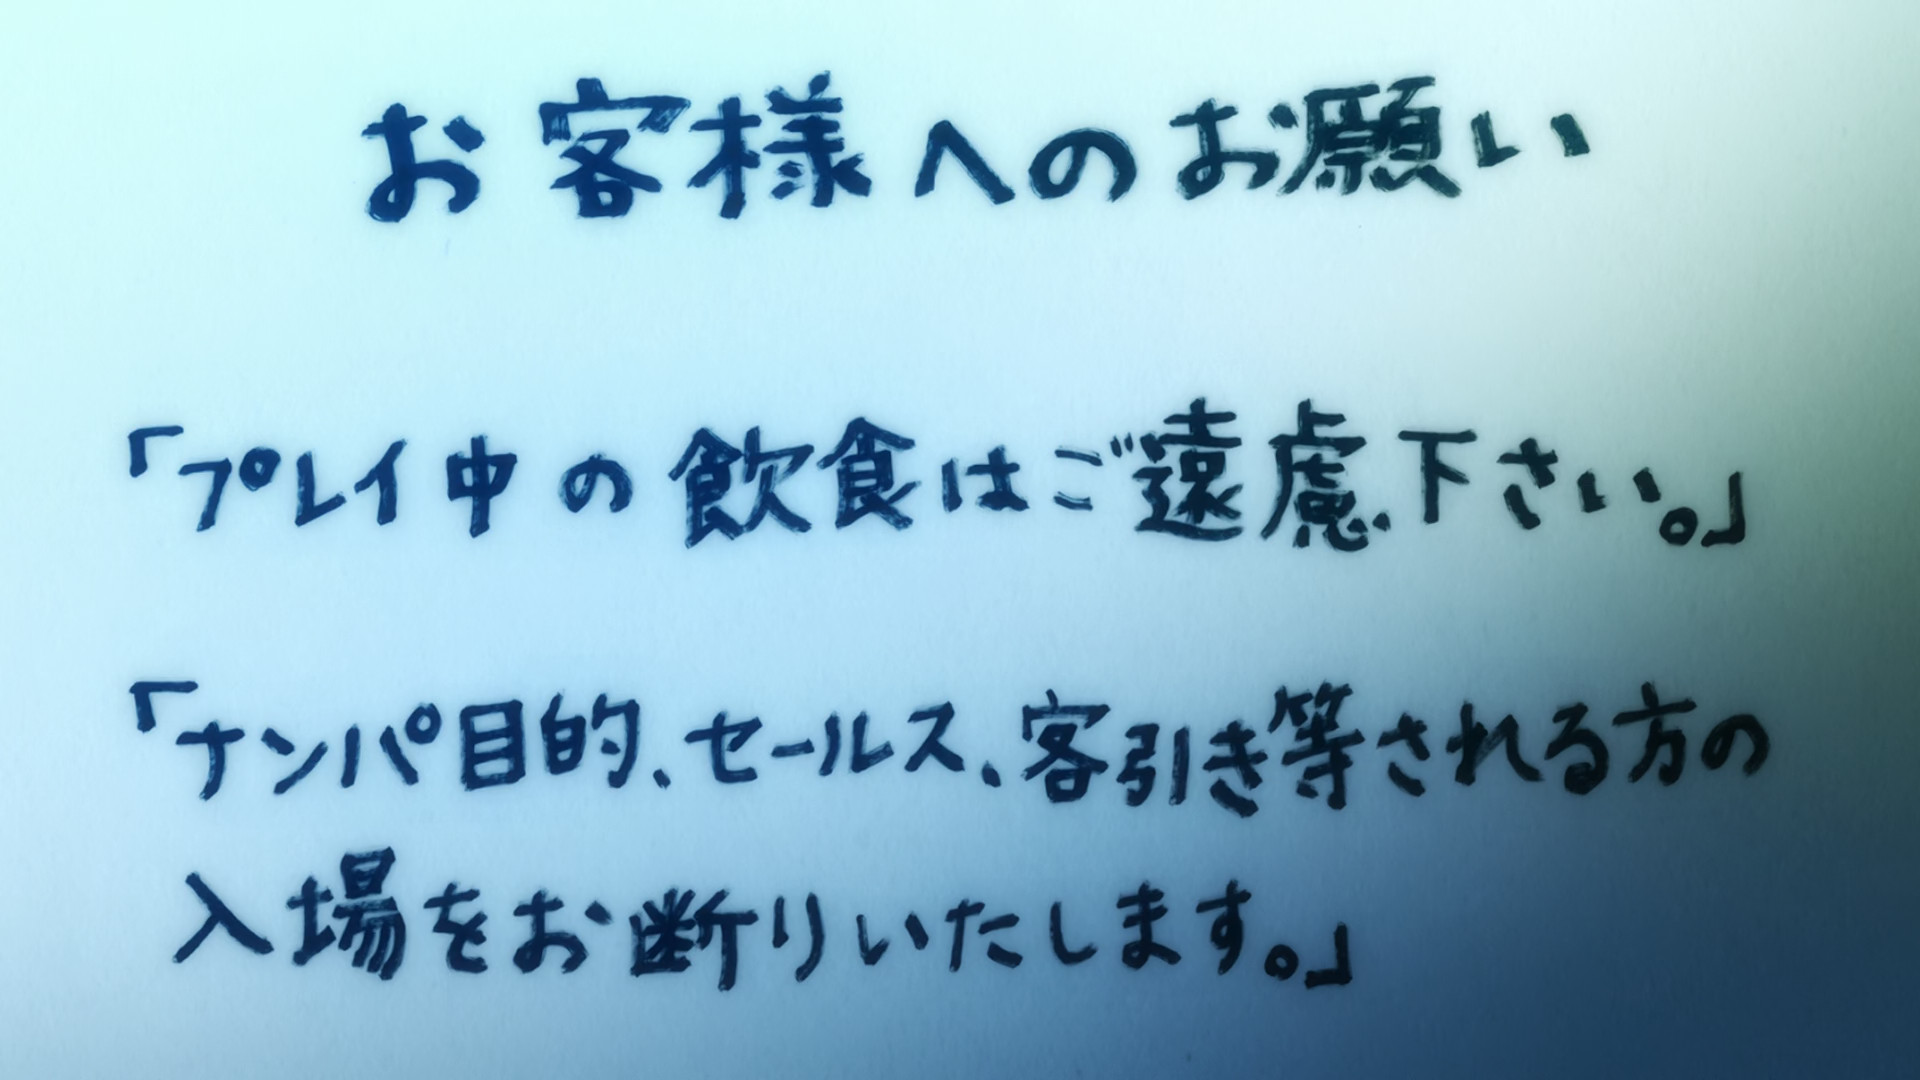 お客様へのお願い
「プレイ中の飲食はご遠慮下さい。」
「ナンパ目的、セールス、客引き等される方の
入場をお断りいたします。」